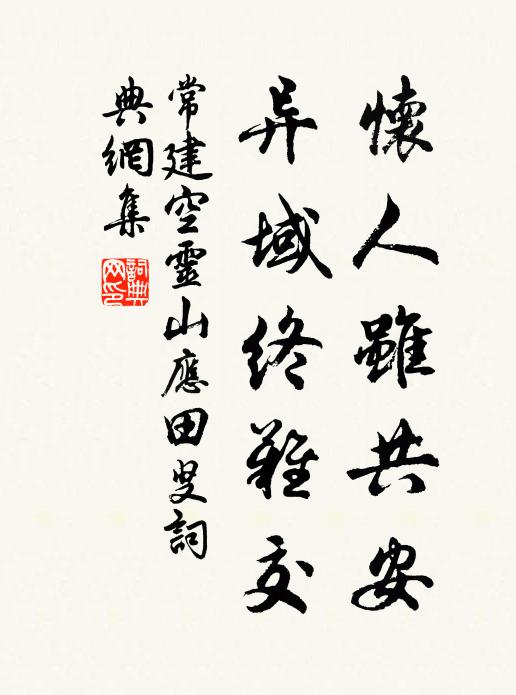 懷人雖共安
异域終難交
常建空靈山應田叟詞
典網集
詞典網印